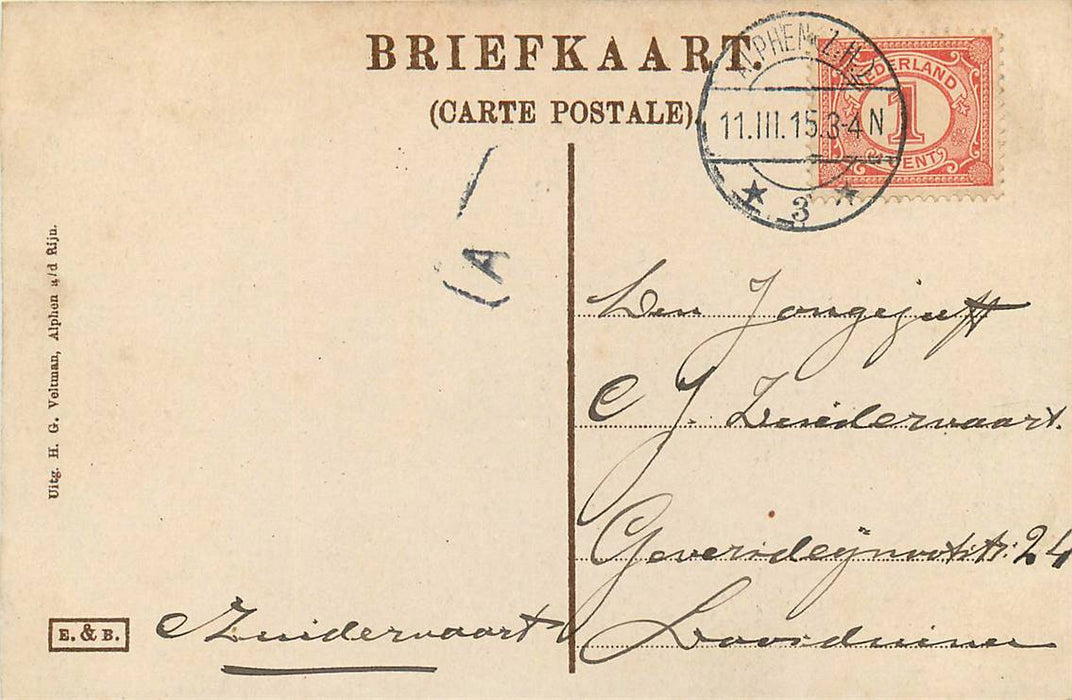 BRIEFKAART.
(CARTE POSTALE)
ALPHEN (Z.H.)
11.III.15.3-4 N
3
NEDERLAND
1
CENT
(A
Jongejuff
C J. Zuidervaart.
24
Loosduinen
Uitg. H. G. Veltman, Alphen a/d Rijn.
E. & B.
Zuidervaart